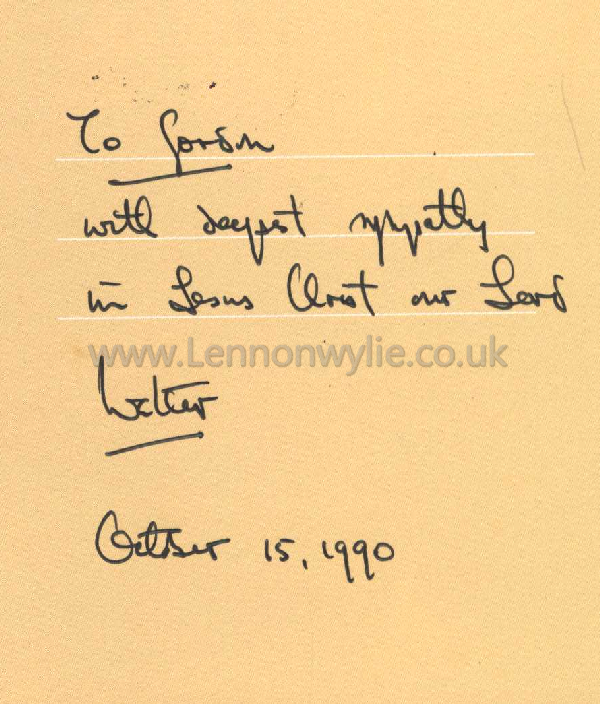 To Gordon
with deepest sympathy
in Jesus Christ our Lord
www.Lennonwylie.co.uk
Walter
October 15, 1990